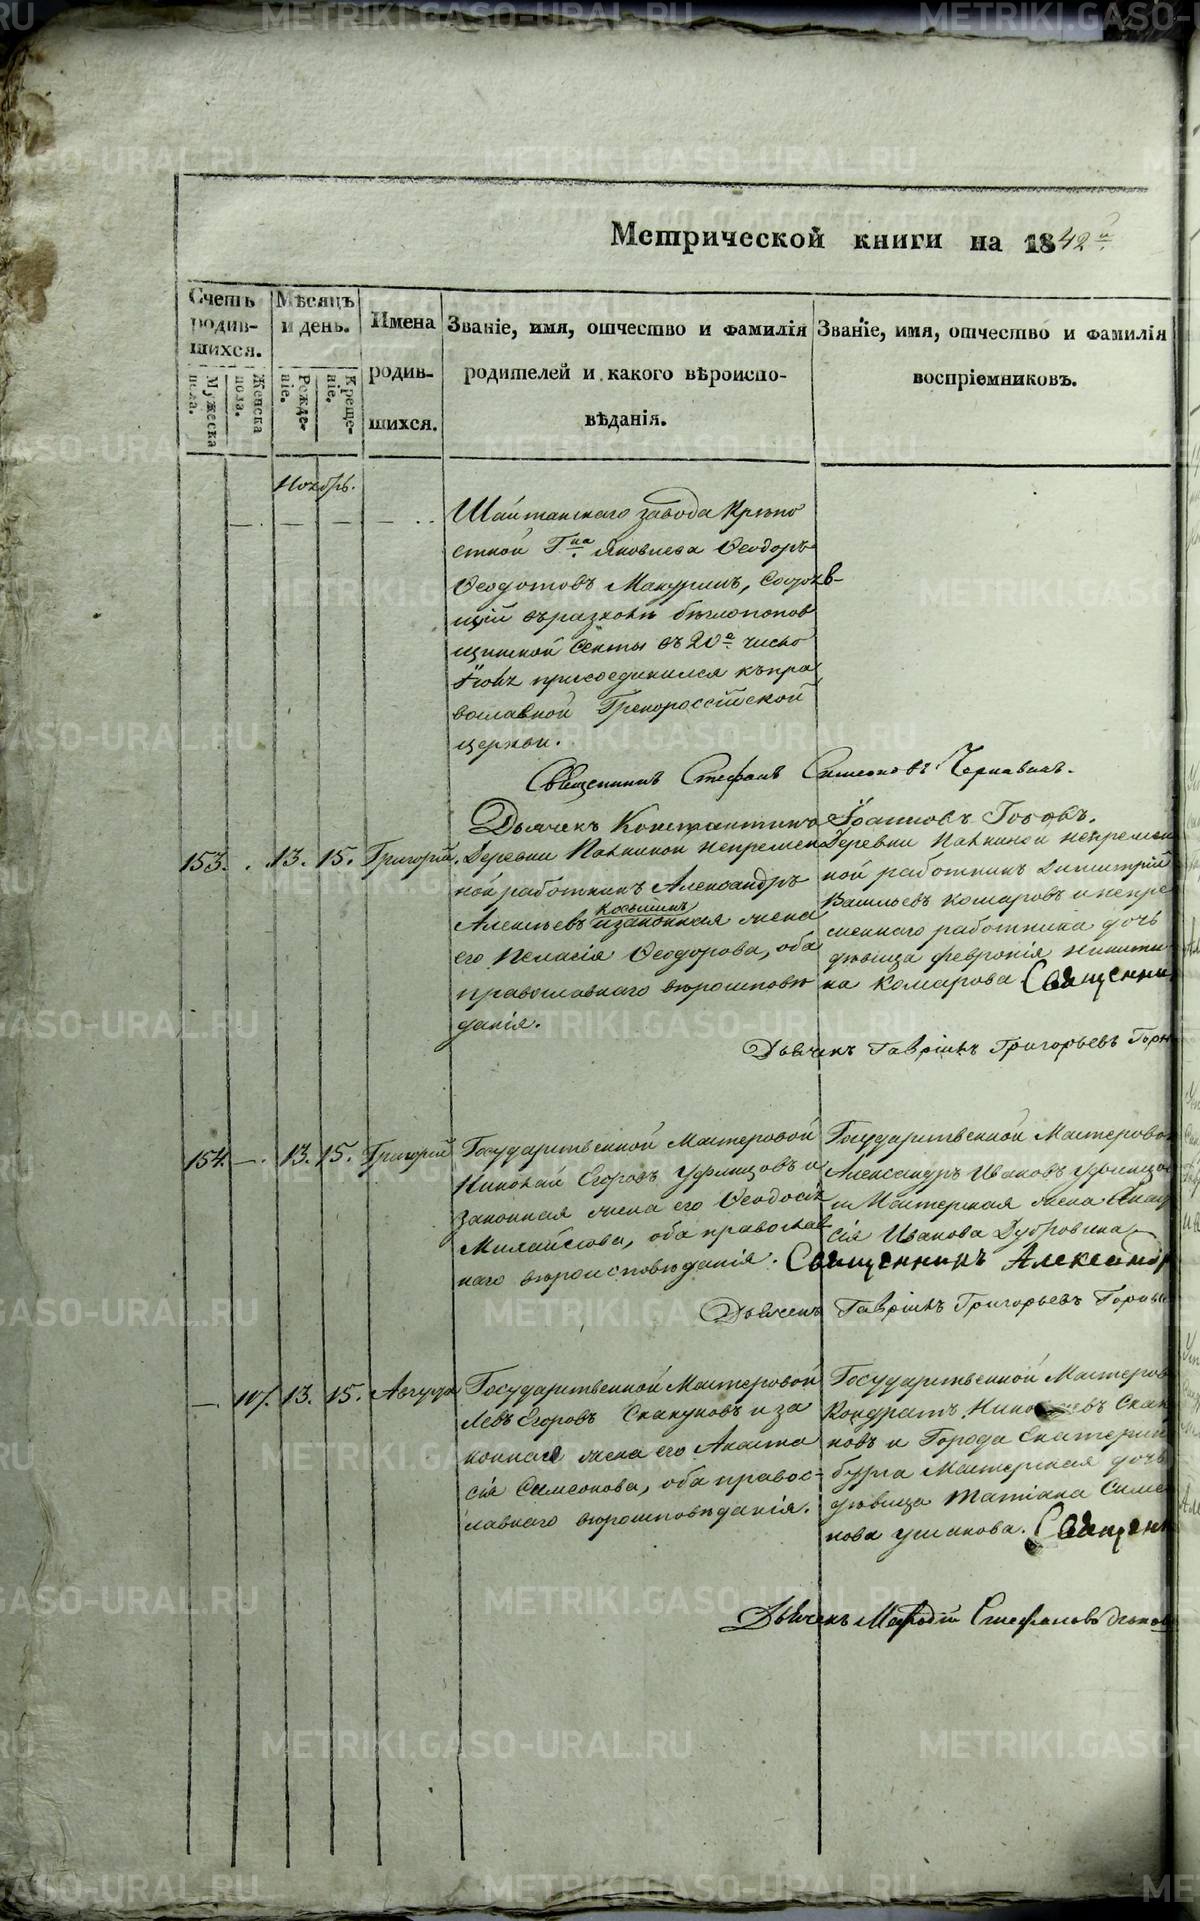 Метрической книги на 1842й
Счетъ родив-шихся.
Мужеска пола.
Женска пола.
Мѣсяцъ и день.
Рожде-ніе.
Креще-ніе.
Имена родив-шихся.
Званіе, имя, отчество и фамилія
родителей и какого вѣроиспо-
вѣданія.
Званіе, имя, отчество и фамилія
воспріемниковъ.
Ноябрь.
Шайтанскаго завода Крѣпо
стной Гна Яковлева Ѳеодоръ
Ѳеодотовъ
щій въ расколѣ бѣглопопов
щинской Секты въ 20е число
присоединился къ пра
вославной Грекороссійской
церкви.
Священникъ Стефанъ Симеоновъ Чернавинъ.
Дьячекъ Константинъ Іоанновъ
153. 13. 15. Григорій.
Деревни непремен
ной работникъ Александръ
Алексѣевъ Косыхинъ и законная жена
его Пелагія Ѳеодорова, оба
православнаго вѣроисповѣ
данія.
Деревни непремен
ной работникъ Димитрій
Васильевъ Комаровъ и непре
меннаго работника дочь
дѣвица Февронія Никити
на Комарова Священни
Дьячекъ Гаврiилъ Григорьевъ Горн
154. — 13. 15. Григорій
Государственной Мастеровой
Николай Егоровъ Уфимцовъ и
законная жена его Ѳеодосія
Михайлова, оба православ
наго вѣроисповѣданія.
Государственной Мастерово
Александръ Ивановъ Уфимцо
и Мастерская жена Анаст
сія Иванова Дубровина
Священникъ Александр
Дьячекъ Гаврiилъ Григорьевъ Горны
— 117. 13. 15. Августа
Государственной Мастеровой
Левъ Егоровъ Скакуновъ и за
конная жена его Анаста
сія Симеонова, оба правос-
лавнаго вѣроисповѣданія.
Государственной Мастеров
Кондратъ Скаку
новъ и Города Екатерин
бурга Мастерская дочь
дѣвица Татіана Симео
нова Ушакова. Священн
Дьячекъ Меѳодій Стефановъ
METRIKI.GASO-URAL.RU